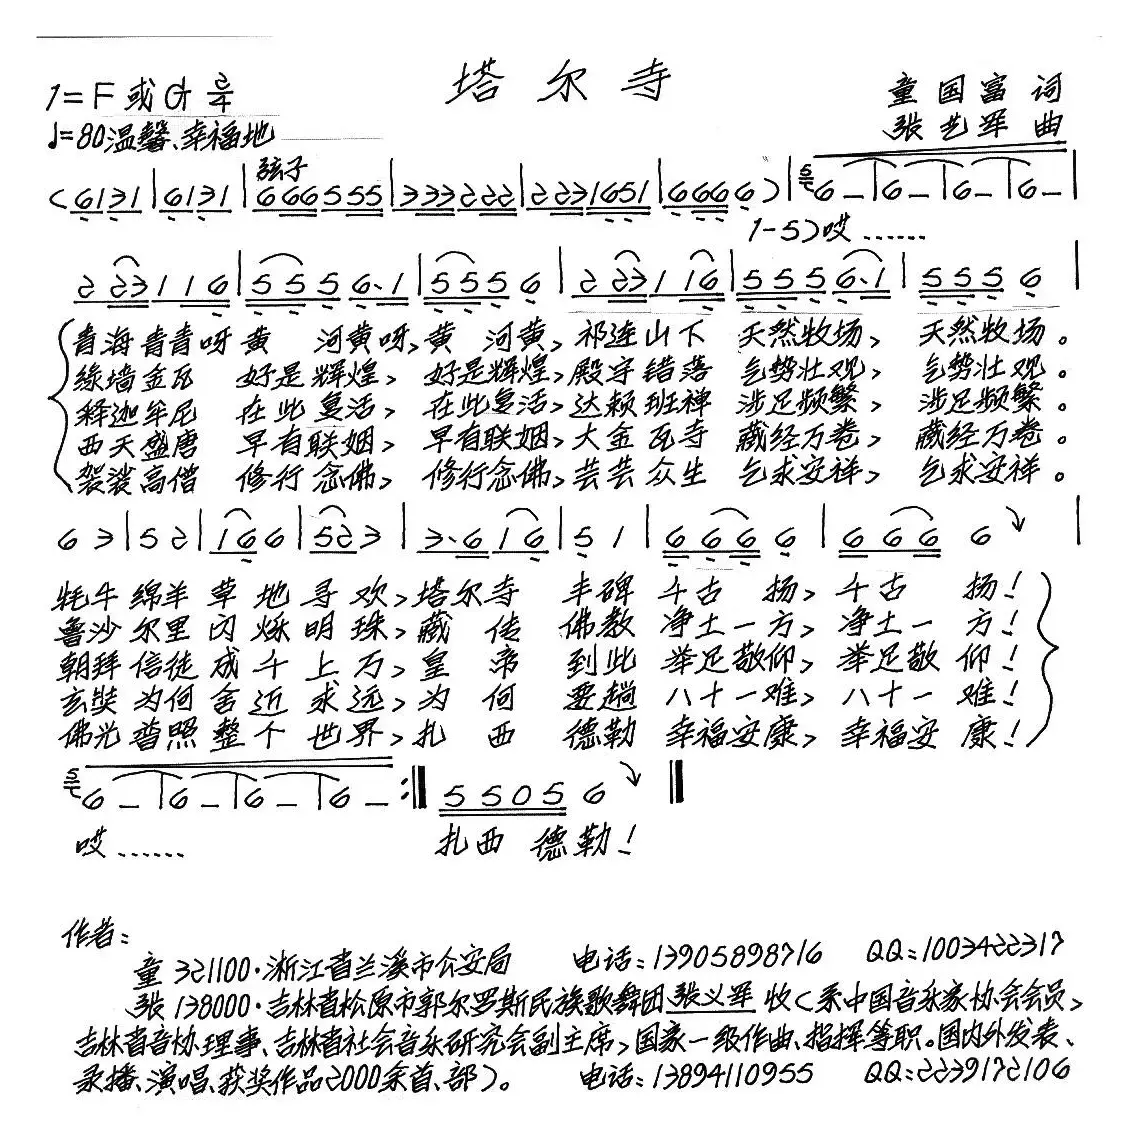 塔尔寺
1=F或G 2/4
童国富 词
张艺军 曲
♩=80温馨、幸福地
弦子
(6131|6131|666555|333222|2231651|6666)|6–|6–|6–|6–|
1-5)哎……
223116|55556·1|5556|223116|55556·1|5556|
青海青青呀黄 河黄呀,黄 河黄,祁连山下 天然牧场, 天然牧场。
绿墙金瓦 好是辉煌, 好是辉煌,殿宇错落 气势壮观, 气势壮观。
释迦牟尼 在此复活, 在此复活,达赖班禅 涉足频繁, 涉足频繁。
西天盛唐 早有联姻, 早有联姻,大金瓦寺 藏经万卷, 藏经万卷。
袈裟高僧 修行念佛, 修行念佛,芸芸众生 乞求安祥, 乞求安祥。
63|52|166|523|3·616|51|6666|6666|
牦牛绵羊草地寻欢,塔尔寺 丰碑千古 扬,千古 扬!
鲁沙尔里闪烁明珠,藏 传 佛教净土一方,净土一 方!
朝拜信徒成千上万,皇 帝 到此举足敬仰,举足敬 仰!
玄奘为何舍近求远,为 何 要趟八十一难,八十一 难!
佛光普照整个世界,扎 西 德勒幸福安康,幸福安 康!
6–|6–|6–|6–:‖55056‖
哎…… 扎西 德勒!
作者:
童 321100·淅江省兰溪市公安局 电话:13905898716 QQ:1003422317
张 138000·吉林省松原市郭尔罗斯民族歌舞团张义军 收(系中国音乐家协会会员,
吉林省音协理事、吉林省社会音乐研究会副主席,国家一级作曲、指挥等职。国内外发表、
录播、演唱、获奖作品2000余首、部)。 电话:13894110955 QQ:2239172106